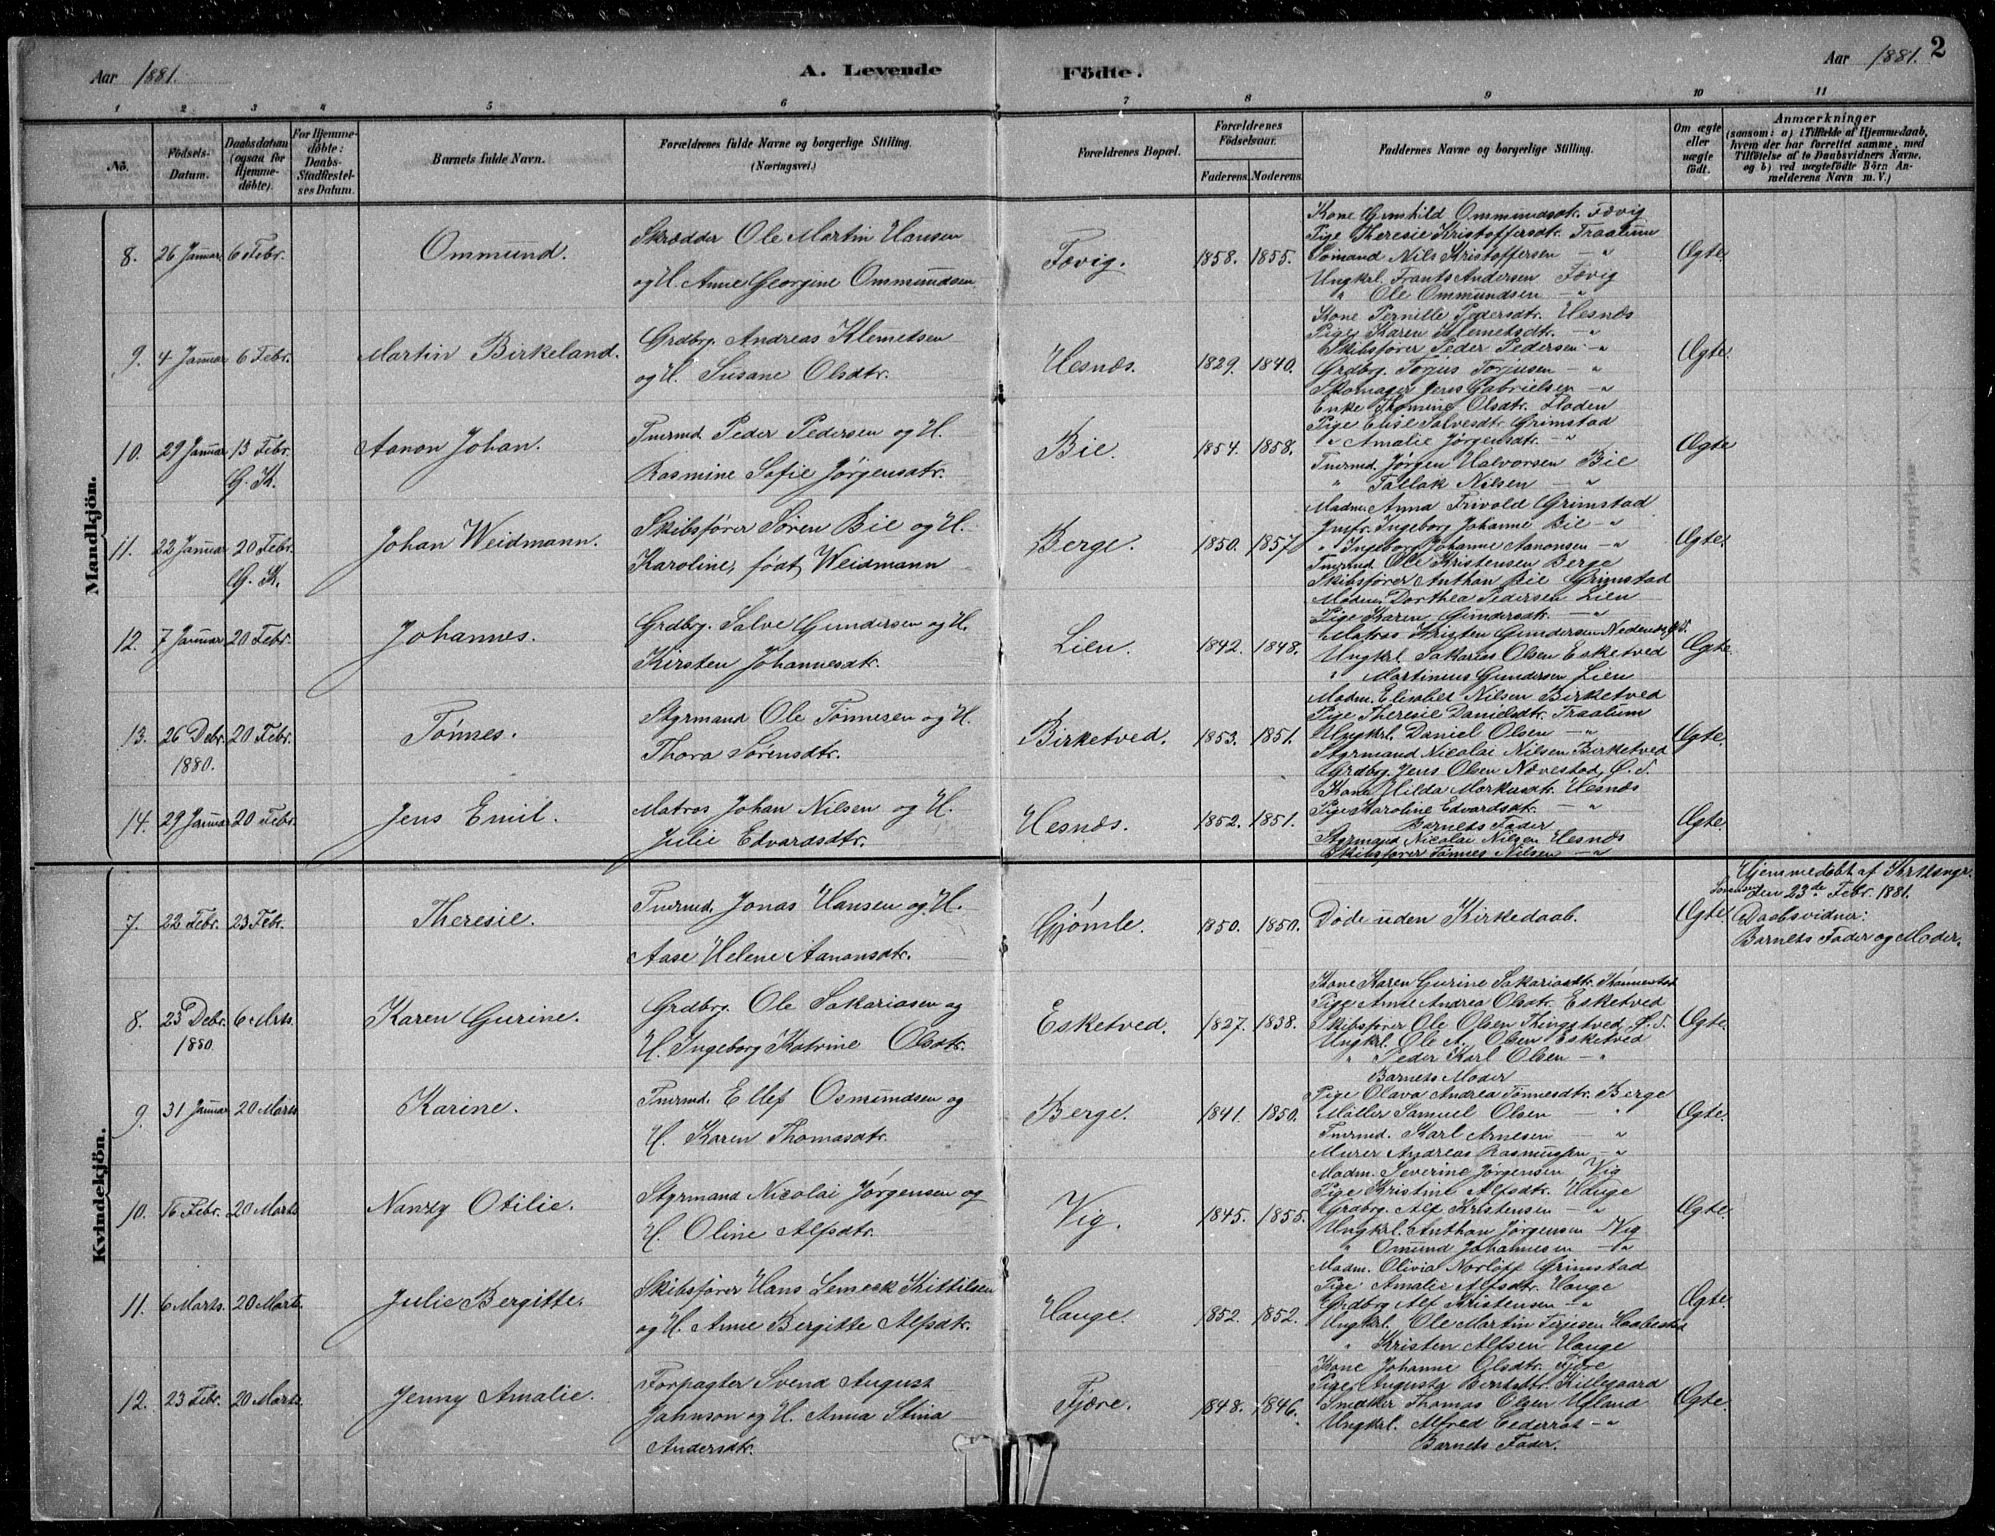 2
Aar 1881.
A. Levende Födte.
Aar 1881.
1 2 3 4 5 6 7 8 9 10 11
No.
Födsels-Datum.
Daabsdatum (ogsaa for Hjemmedöbte).
For Hjemmedöbte: Daabs-Stadfæstelses Datum.
Barnets fulde Navn.
Forældrenes fulde Navne og borgerlige Stilling. (Næringsvei.)
Forældrenes Bopæl.
Forældrenes Födselsaar.
Faderens. Moderens.
Faddernes Navne og borgerlige Stilling.
Om ægte eller uægte födt.
Anmærkninger
(saasom: a) i Tilfælde af Hjemmedaab, hvem der har forrettet samme, med Tilföielse af to Daabsvidners Navne, og b) ved uægtefödte Börn Anmelderens Navn m. V.)
Mandkjön.
8. 26 Januar 6 Febr. Ommund.
Skrædder Ole Martin Hansen
og H. Anne Georgine Ommundsen
Fævig. 1858. 1855.
Kone Gunhild Ommundsdtr. Fævig
Pige Theresie Kristoffersdtr. Traalum
Sømand Nils Kristoffersen — "
Ungkrl. Frants Andersen Fævig
" Ole Ommundsen — "
Ægte.
9. 4 Januar 6 Febr. Martin Birkeland.
Grdbrg. Andreas Klemetsen
og H. Susane Olsdtr.
Hesnæs. 1829. 1840.
Kone Pernille Pedersdtr. Hesnæs
Pige Karen Klemetsdtr. — "
Skibsfører Peder Pedersen — "
Grdbrg. Torjus Torjusen — "
Skomager Jens Gabrielsen — "
Ægte.
10. 29 Januar 13 Febr. G. K. Aanon Johan.
Tmrmd. Peder Pedersen og H.
Rasmine Sofie Jørgensdtr.
Bie. 1854. 1858.
Enke Thomine Olsdtr. Floden
Pige Elise Salvesdtr. Grimstad
" Amalie Jørgensdtr. — "
Tmrmd. Jørgen Halvorsen Bie
" Tallak Nilsen — "
Ægte
11. 22 Januar 20 Febr. G. K. Johan Weidmann.
Skibsfører Søren Bie og H.
Karoline, født Weidmann
Berge. 1850. 1857
Madm. Anna Frivold Grimstad
Jmfr. Ingeborg Johanne Bie — "
" Ingeborg Johanne Aanonsen — "
Tmrmd. Ole Kristensen Berge
Skibsfører Anthon Bie Grimstad
Ægte.
12. 7 Januar 20 Febr. Johannes.
Grdbrg. Salve Gundersen og H.
Kirsten Johannesdtr.
Lien. 1842. 1848.
Madm. Dorthea Pedersen Lien
Pige Karen Gundersdtr. — "
Matros Kristen Gundersen Nedenæs, Ø. S.
Ungkrl. Sakarias Olsen Esketved
" Martinius Gundersen Lien
Ægte.
13. 26 Debr. 1880. 20 Febr. Tønnes.
Styrmand Ole Tønnesen og H.
Thora Sørensdtr.
Birketved. 1853. 1851.
Madm. Elisabet Nilsen Birketved
Pige Theresie Danielsdtr. Traalum
Ungkrl. Daniel Olsen — "
Styrmand Nicolai Nilsen Birketved
Grdbrg. Jens Olsen Nævestad, Ø. S.
Ægte.
14. 29 Januar 20 Febr. Jens Emil.
Matros Johan Nilsen og H.
Julie Edvardsdtr.
Hesnæs. 1852. 1851.
Kone Hilda Markusdtr. Hesnæs
Pige Karoline Edvardsdtr. — "
Barnets Fader
Styrmand Nicolai Nilsen Hesnæs
Skibsfører Tønnes Nilsen — "
Ægte.
Kvindekjön.
7. 22 Febr. 23 Febr. Theresie.
Tmrmd. Jonas Hansen og H.
Aase Helene Aanonsdtr.
Gjømle. 1850. 1850.
Døde uden Kirkedaab.
Ægte.
Hjemmedøbt af Kirkesngr.
Sørensen den 23de Febr. 1881.
Daabsvidner:
Barnets Fader og Moder.
8. 23 Debr. 1880. 6 Mrts. Karen Gurine.
Grdbrg. Ole Sakariasen og
H. Ingeborg Katrine Olsdtr.
Esketved. 1827. 1838.
Kone Karen Gurine Sakariasdtr. Rønnestad
Pige Anne Andrea Olsdtr. Esketved
Skibsfører Ole Olsen Thingstved, Ø. S.
Ungkrl. Ole A. Olsen Esketved
" Peder Karl Olsen — "
Ægte.
9. 31 Januar 20 Marts Karine.
Tmrmd. Ellef Osmundsen og
H. Karen Thomasdtr.
Berge. 1841. 1850.
Barnets Moder
Pige Olava Andrea Tønnesdtr. Berge
Møller Samuel Olsen — "
Tmrmd. Karl Arnesen — "
Murer Andreas Rasmussen — "
Ægte.
10. 16 Febr. 20 Marts Nanzy Otilie.
Styrmand Nicolai Jørgensen og
H. Oline Alfsdtr.
Vig. 1845. 1855.
Madm. Severine Jørgensen Vig
Pige Kristine Alfsdtr. Hauge
Grdbrg. Alf Kristensen — "
Ungkrl. Anthon Jørgensen Vig
" Omund Johannesen — "
Ægte.
11. 6 Marts. 20 Marts. Julie Bergitte.
Skibsfører Hans Semesk Kittilsen
og H. Anne Bergitte Alfsdtr.
Hauge. 1852. 1852.
Madm. Olivia Norløff Grimstad
Pige Amalie Alfsdtr. Hauge
Grdbrg. Alf Kristensen — "
Ungkrl. Ole Martin Terjesen Haabestad
" Kristen Alfsen Hauge
Ægte.
12. 23 Febr. 20 Marts. Jenny Amalie.
Forpagter Svend August
Johnson og H. Anna Stina
Andersdtr.
Fjære. 1848. 1846.
Kone Johanne Olsdtr. Fjære
Pige Augusta Berntsdtr. Killegaard
Snedker Thomas Olsen Ufland
Ungkrl. Alfred Cederros — "
Barnets Fader.
Ægte.